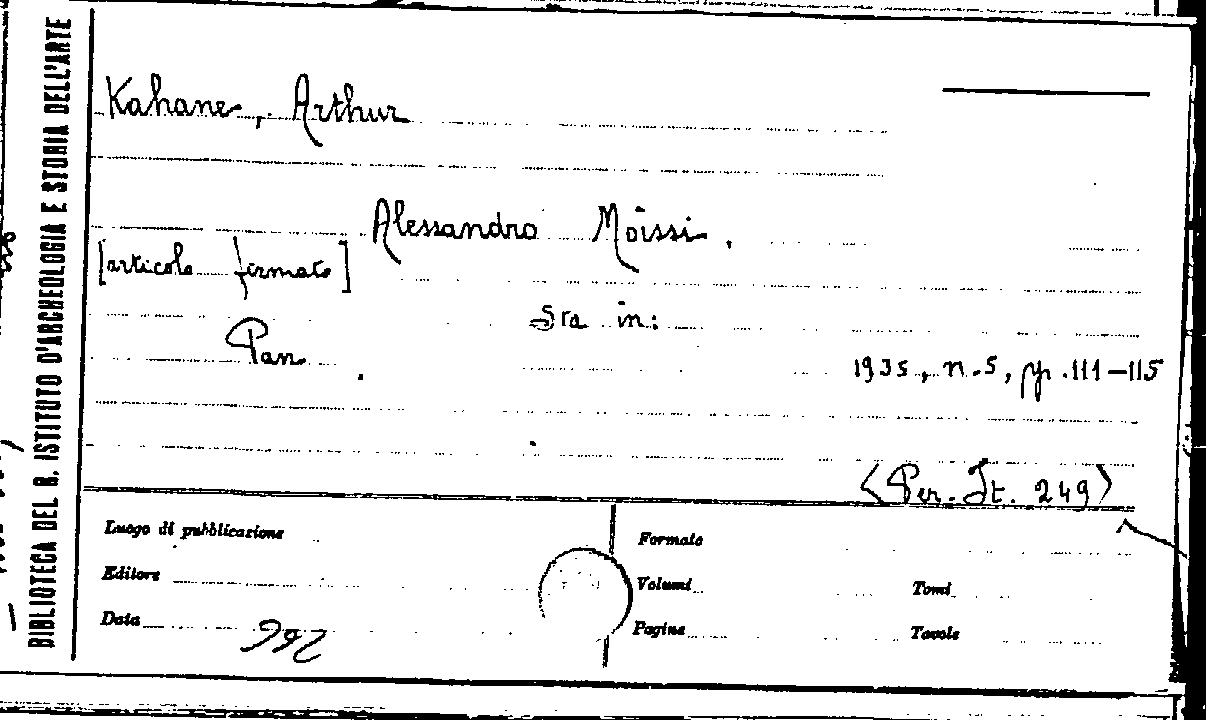 BIBLIOTECA DEL R. ISTITUTO D'ARCHEOLOGIA E STORIA DELL'ARTE
Kahane, Arthur
Alessandro Moissi.
[articolo firmato]
Sta in:
Pan.
1935, n. 5, pp. 111-115
<Per. It. 249>
Luogo di pubblicazione
Editore
Data
Formato
Volumi
Tomi
Pagine
Tavole